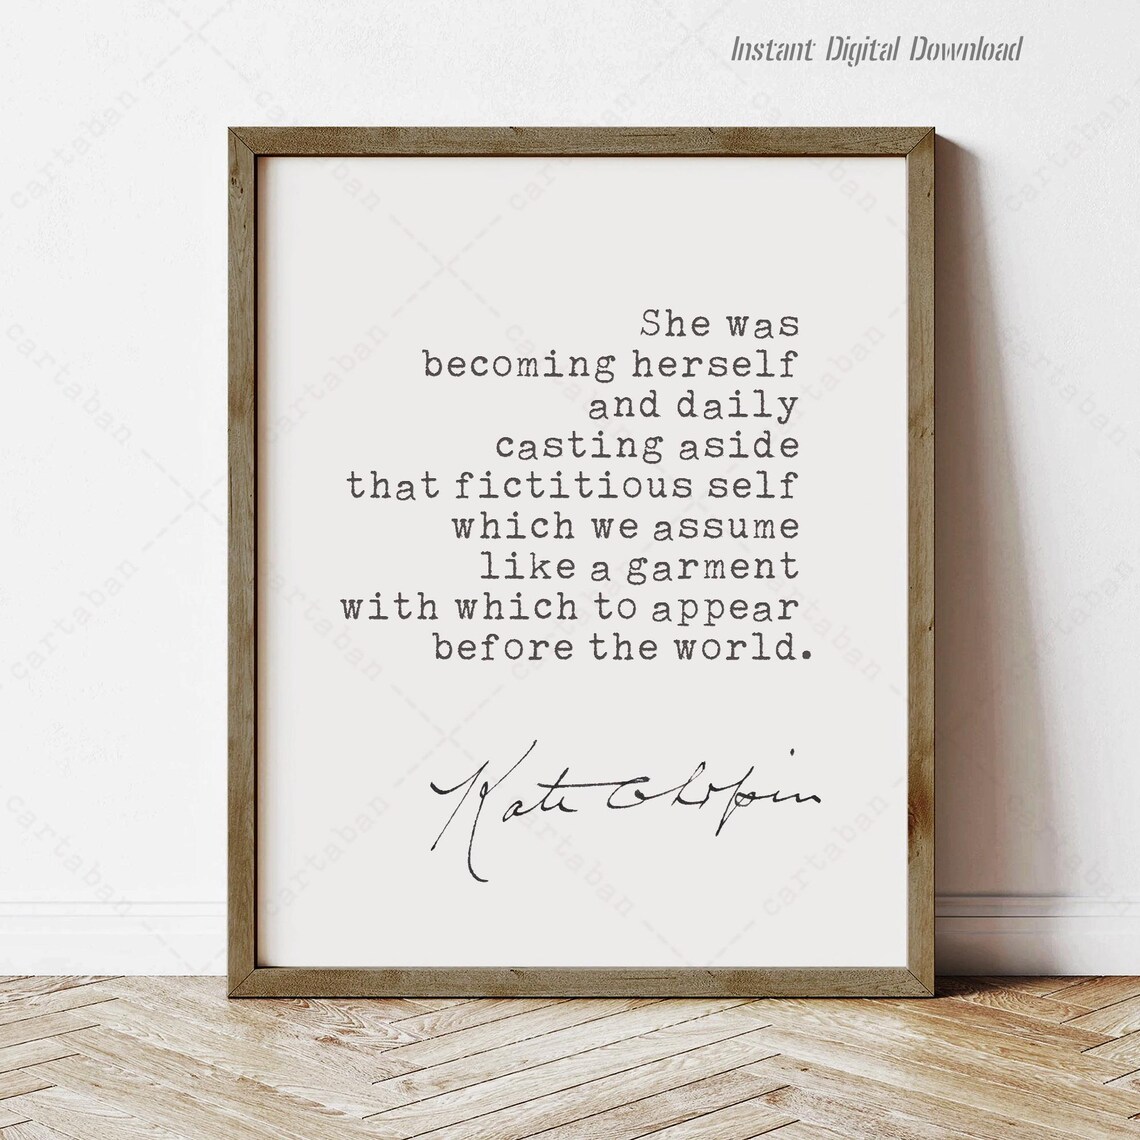 Instant Digital Download
She was
becoming herself
and daily
casting aside
that fictitious self
which we assume
like a garment
with which to appear
before the world.
Kate Chopin
cartaban